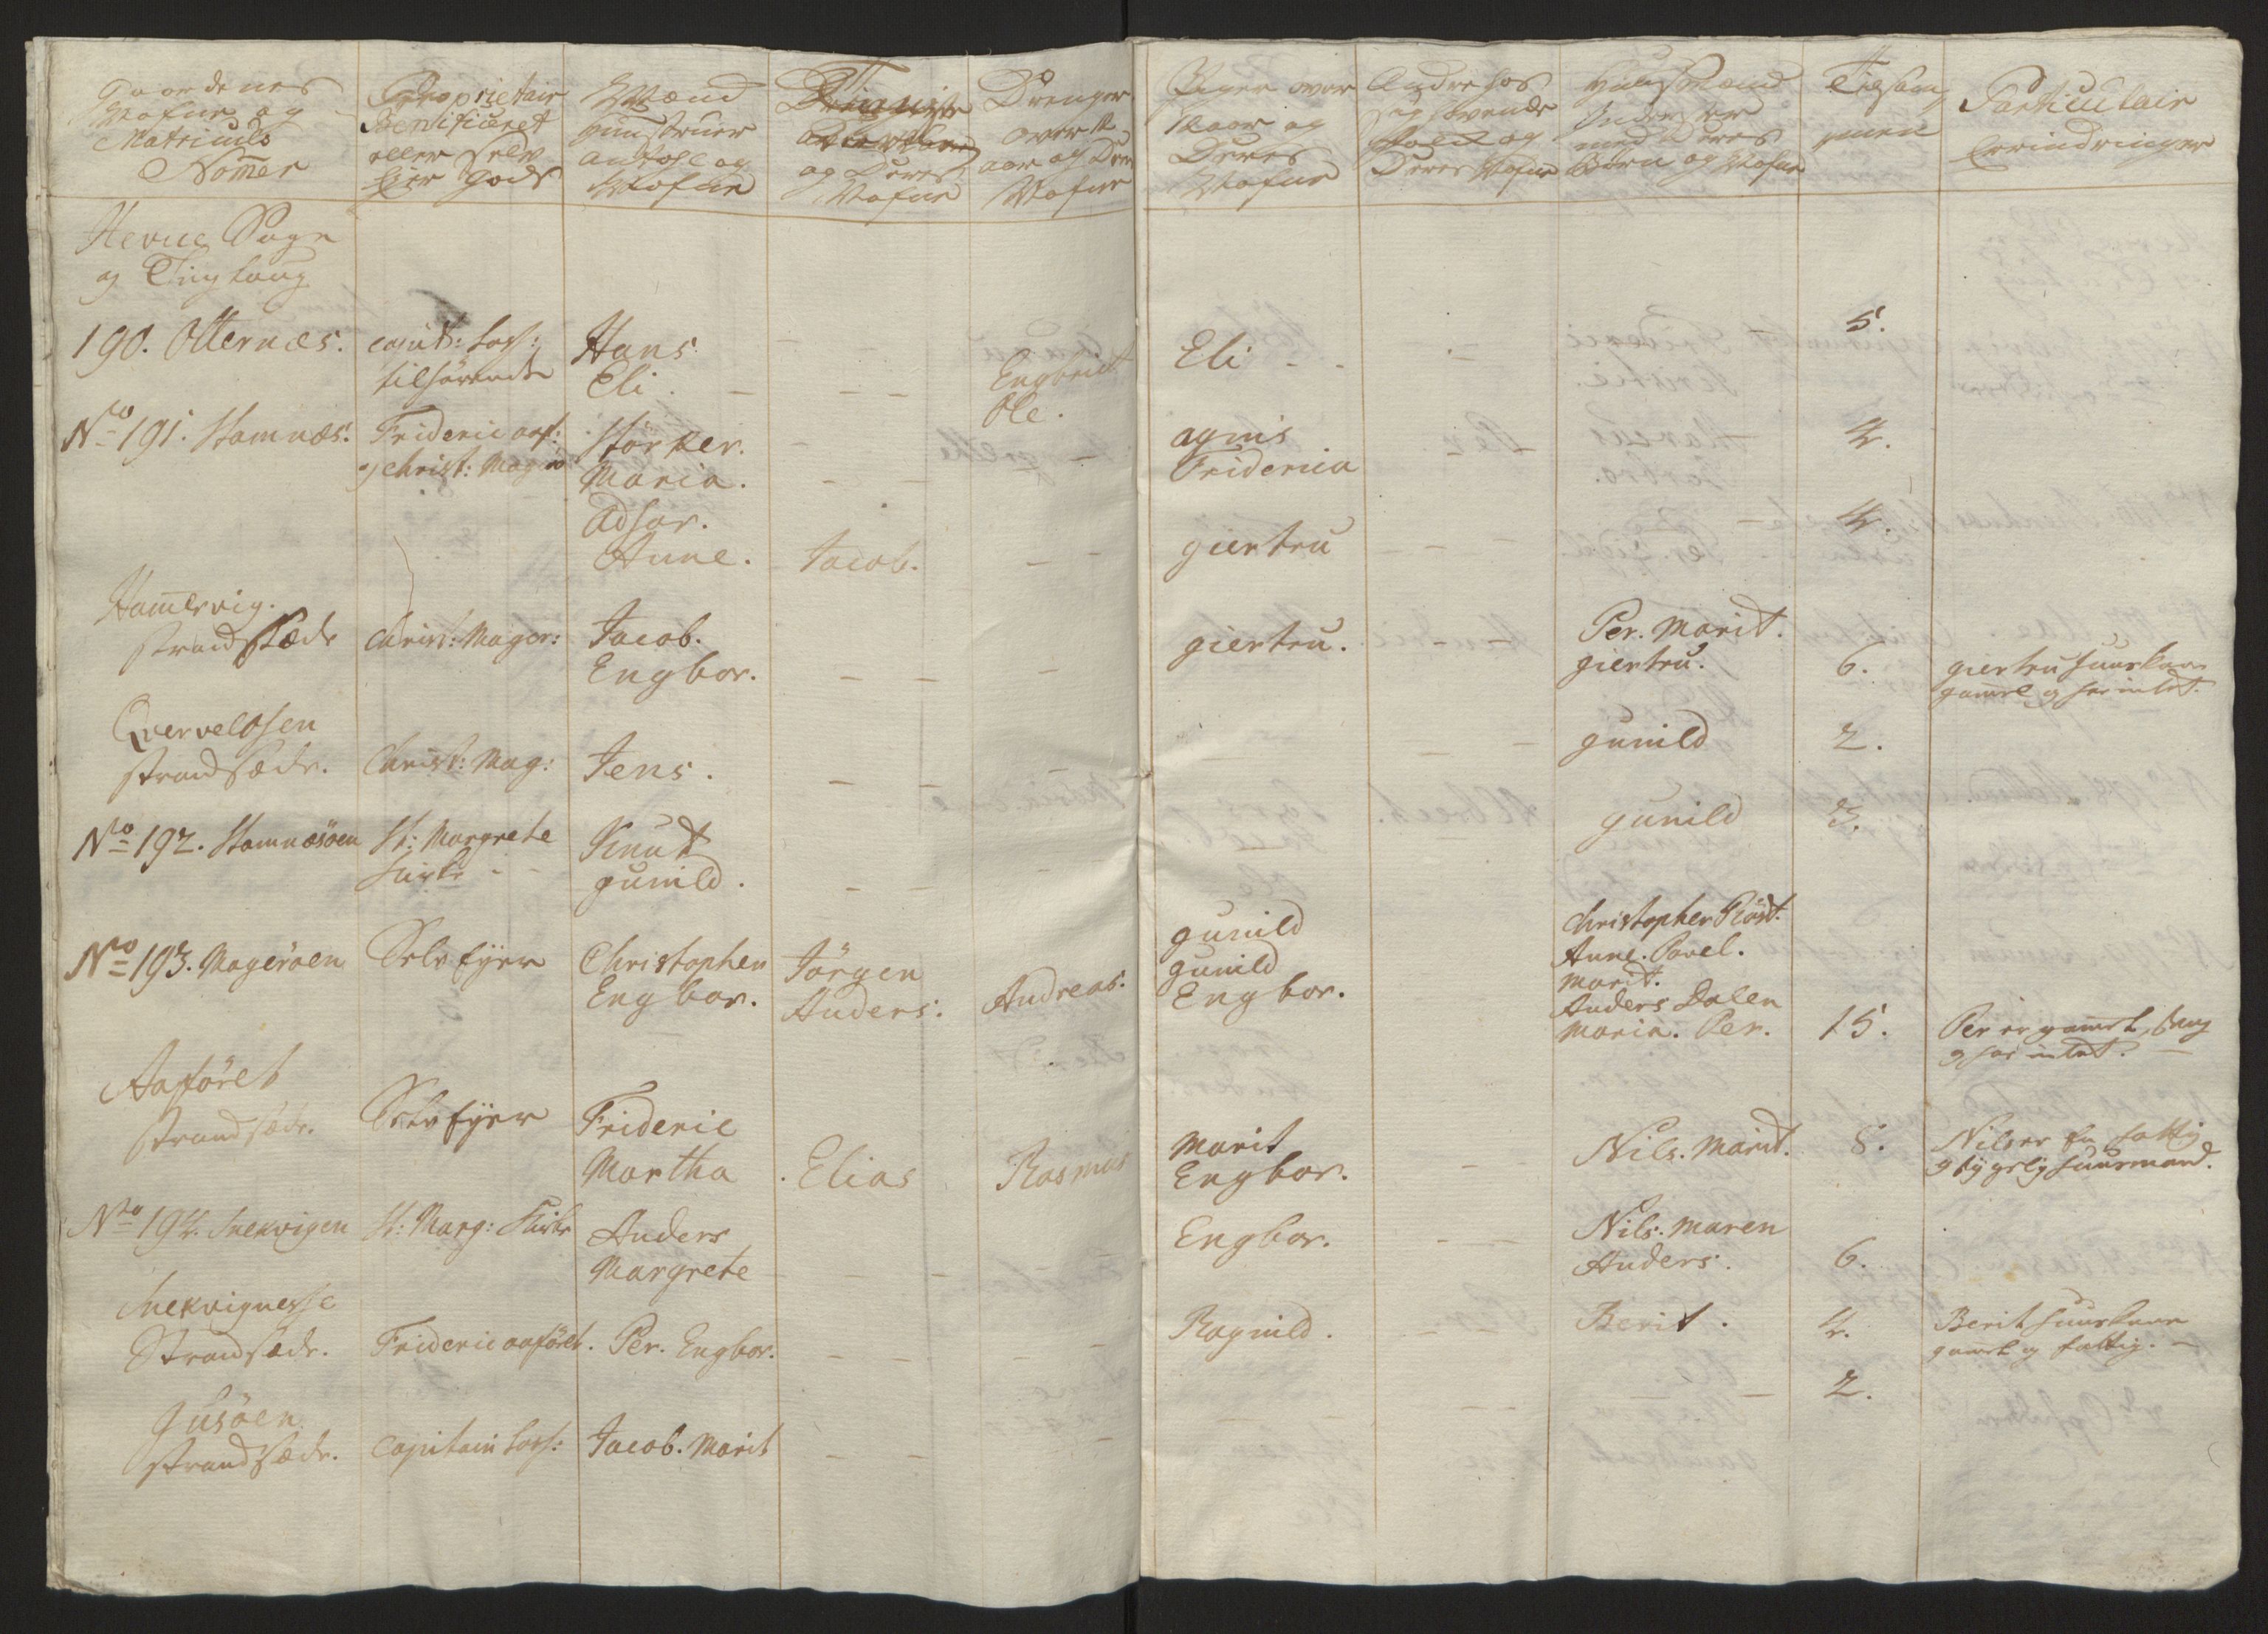 Gaardenes
Nafne og
Matriculs
Nom̄er
Proprietair
Benificeret
eller Selv
Eier gods
Mænd
Hunstruer
andfohl og
Nafne
og Deres
Nafne
Drenger
over
aar og Dere
Nafne
Piger over
aar og
Deres
Nafne
Andre hos
sig
og
Deres Nafne
Huusmænd
Inderster
med Deres
Børn og Nafne
Tilsam̄
men
Particulair
Errindringer
Hevne Sogn
og Tinglaug
190. Otternæs.
tilhørende
Hans
Eli. –
Engbrict
Ole.
Eli
5.
No 191. Stamnæs.
Frideric aaf:
og Christ: Magerø
Størker.
Maria.
agnis
Fridericia
4.
Adsar.
Anne.
Jacob.
giertru
4.
Ham̄ervig.
strandsæde
Christ: Mager:
Jacob.
Engbor.
giertru.
Per. Marit.
giertru.
6.
giertru huuskone
gam̄el og har intet.
Qvervelosen
strandsæde.
Christ: Mag:
Jens.
gunild
2.
No 192. Stamnæsøen
St: Margrete
Kirke
Knut
gunild.
gunild
3.
No 193. Magerøen
Selv Eyer
Christopher
Engbor.
Jörgen
Anders:
Andreas.
gunild
gunild
Engbor.
Christopher Röst.
Anne. Povel.
Marit.
Anders Dalen
Maria. Per.
15.
Per er gam̄el, svag
og har intet.
Aaföret
strandsæde.
Selv Eyer
Frideric
Martha
Elias
Rasmus
Marit
Engbor.
Nils. Marit.
8.
Nils er en fattig
og sygelig huusmand.
No 194. Snekvigen
St: Marg: Kirke
Anders
Margrete
Engbor.
Nils. Maren
Anders.
6.
Snekvignesse
Strandsæde.
Frideric aaföret.
Per. Engbor.
Ragnild.
Berit.
4.
Berit huuskone
gam̄el og fattig.
Gusöen
strandsæde.
Capitain Loss:
Jacob. Marit
2.